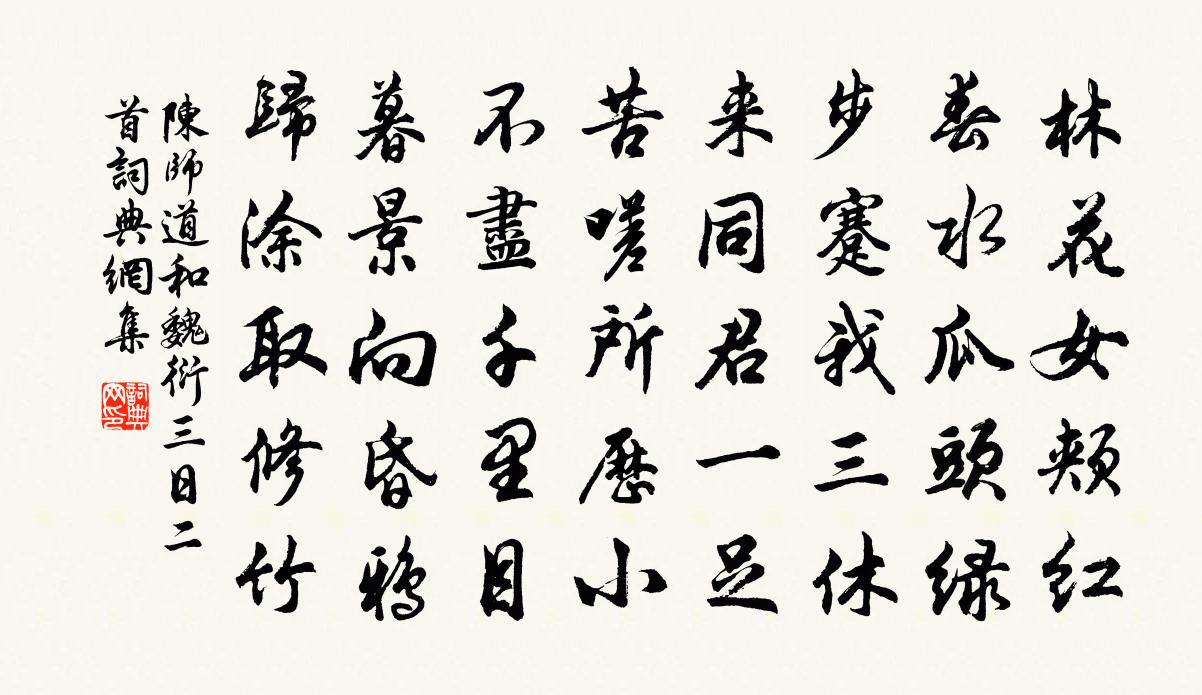 林花女頰紅
春水瓜頭綠
步蹇我三休
来同君一足
苦嗟所歷小
不盡千里目
暮景向昏鴉
歸涂取修竹
陳師道和魏衍三日二
首詞典網集
詞典
网印